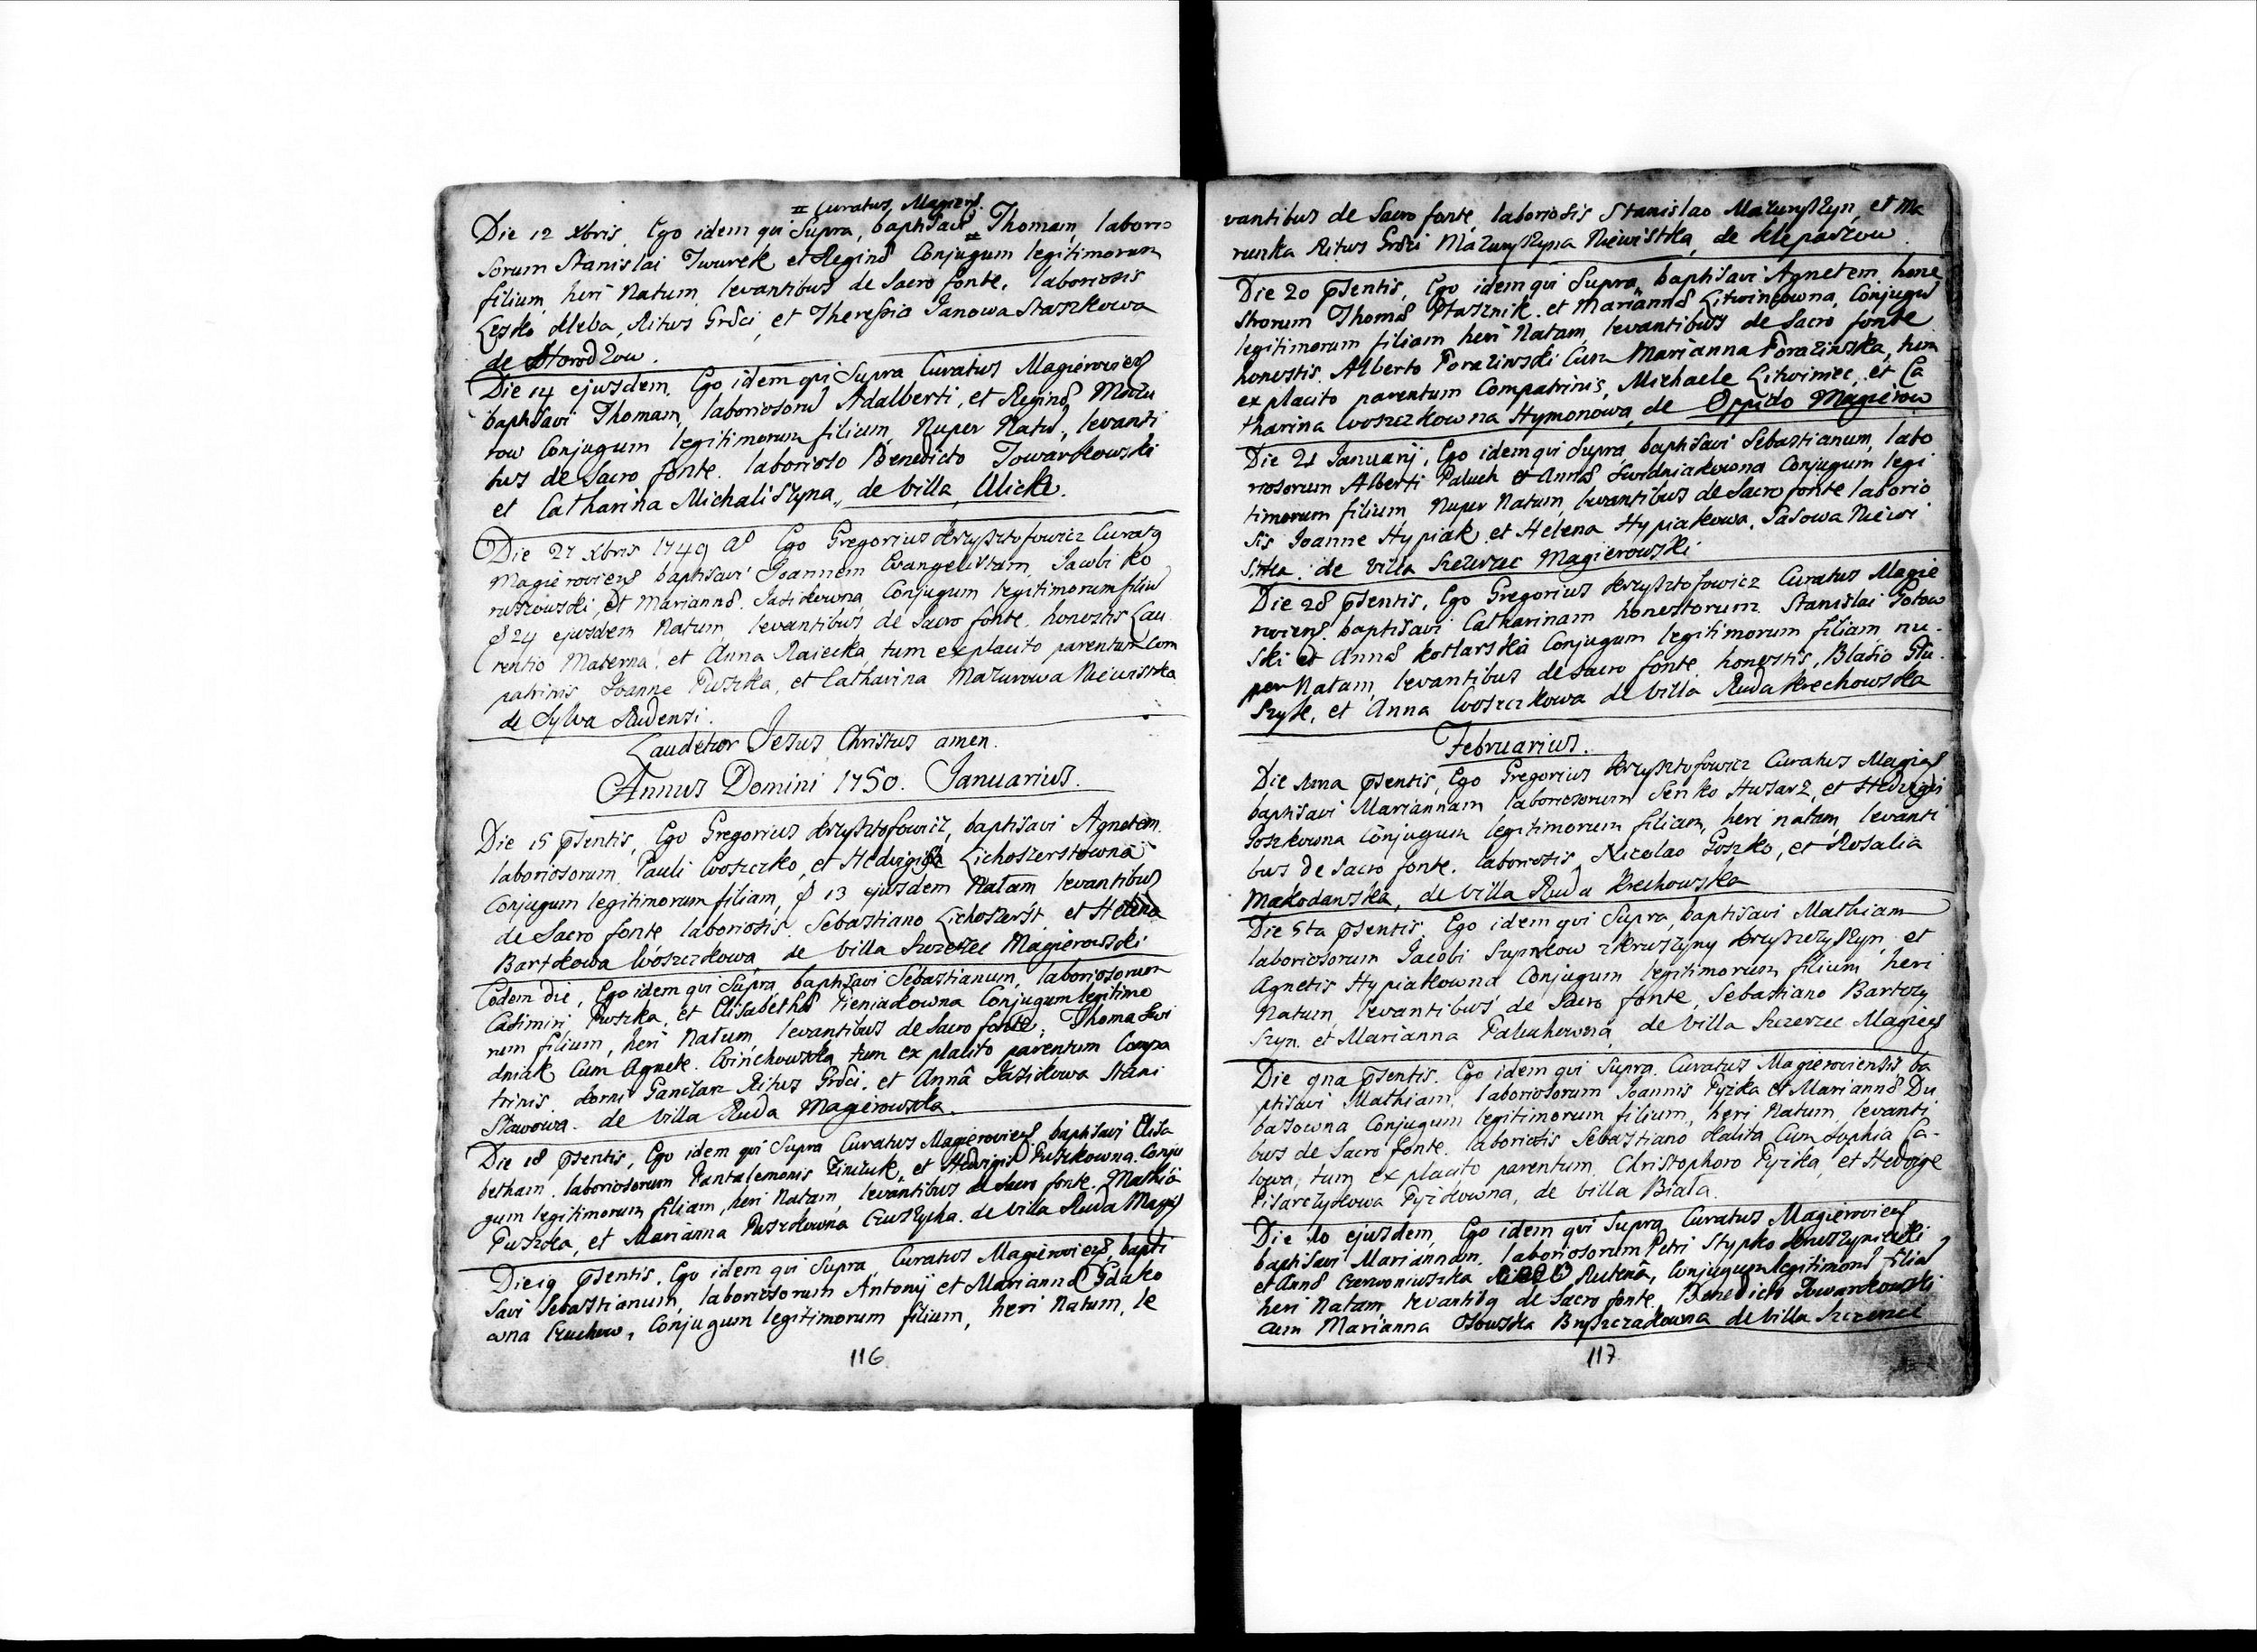 = Curatus Magierens.
Die 12 Xbris. Ego idem qui Supra, baptisavi = Thomam, laborio
sorum Stanislai Twurek et Reginæ Conjugum legitimorum
filium heri Natum levantibus de Sacro fonte, laboriosis
Lesko Hleba, Ritus Græci, et Theressia Janowa Staszkowa
de
Die 14 ejusdem. Ego idem qui Supra Curatus Magieroviens
baptisavi Thomam, laboriosorum Adalberti, et Reginæ Mazu
row Conjugum legitimorum filium, Nuper Natum, levanti
bus de Sacro fonte. laborioso Benedicto Towarkowski
et Catharina Michaliszyna, de Villa Ulicke.
Die 27 Xbris 1749 Ao Ego Gregorius Krzysztofowicz Curatus
Magieroviens baptisavi Joannem Evangelistam, Jacobi Ko
ruszowski, et Mariannæ Jasikowna, Conjugum legitimorum filium
d 24 ejusdem Natum, levantibus de Sacro fonte. honestis Lau
rentio Materna, et Anna Raiecka tum explacito parentum Com
patrinis Joanne Puszka, et Catharina Mazurowa Niewistka
de Sylva Rudensi.
Laudetur Jesus Christus amen.
Annus Domini 1750. Januarius.
Die 15 præsentis, Ego Gregorius Krzysztofowicz, baptisavi Agnetem
laboriosorum Pauli Woszczko, et Hedvigis Lichoszerstowna
Conjugum legitimorum filiam, d 13 ejusdem Natam levantibus
de Sacro fonte laboriosis. Sebastiano Lichoszerst et Helena
Bartkowa Woszczkowa de Villa Szczerzec Magierowski
Eodem die, Ego idem qui Supra, baptisavi Sebastianum, laboriosorum
Casimiri Puszka et Elisabethæ Pieniakowna Conjugum legitimo
rum filium, heri Natum, levantibus de Sacro fonte, Thoma Swi
dniak Cum Agnete Winchowska tum ex placito parentum Compa
trinis. Korni Ganczarz Ritus Græci, et Anna Jasikowa Stani
sławowa. de Villa Ruda Magierowska.
Die 18 præsentis, Ego idem qui Supra Curatus Magieroviens baptisavi Elisa
betham, laboriosorum Pantalemonis Zinczuk, et Hedvigis Puszkowna, Conju
gum legitimorum filiam, heri Natam, levantibus de Sacro fonte. Mathia
Puszka, et Marianna Puszkowna Czuszycha. de Villa Ruda Magier
Die 19 præsentis. Ego idem qui Supra Curatus Magieroviens, bapti
savi Sebastianum, laboriosorum Antonij et Mariannæ Gdako
wna Czuchow, Conjugum legitimorum filium, heri Natum, le
116
vantibus de Sacro fonte, laboriosis Stanislao Mazuryszyn, et Ma
runka Ritus Græci Mazuryszyna Niewistka, de Kleparzow
Die 20 præsentis, Ego idem qui Supra, baptisavi Agnetem, hone
storum Thomæ Ptasznik et Mariannæ Litwincowna, Conjugum
legitimorum filiam heri Natam, levantibus de Sacro fonte
honestis Alberto Porazinski Cum Marianna Porazinska, tum
ex placito parentum Compatrinis, Michaele Litwiniec, et Ca
tharina Woszczkowna Hymonowa, de Oppido Magierow
Die 21 Januarij, Ego idem qui Supra baptisavi Sebastianum, labo
riosorum Alberti Paluch et Annæ Swidniakowna Conjugum legi
timorum filium Nuper Natum, levantibus de Sacro fonte laborio
sis Joanne Hypiak et Helena Hypiakowa, Jasowa Niewi
stka. de Villa Szczerzec Magierowski
Die 28 præsentis, Ego Gregorius Krzysztofowicz Curatus Magie
roviens. baptisavi Catharinam honestorum Stanislai Potow
ski et Annæ Kotlarska Conjugum legitimorum filiam, nu
per Natam, levantibus de Sacro fonte honestis, Blasio Glu
szyk, et Anna Woszczkowa de Villa Ruda Krechowska
Februarius.
Die 1ma præsentis, Ego Gregorius Krzysztofowicz Curatus Magier
baptisavi Mariannam laboriosorum Senko Husarz, et Hedvigis
Joszkowna Conjugum legitimorum filiam, heri natam, levanti
bus de Sacro fonte. laboriosis, Nicolao Joszko, et Rosalia
Makodanska, de Villa Ruda Krechowska
Die 5ta præsentis. Ego idem qui Supra, baptisavi Mathiam
laboriosorum Jacobi Supnkow zkruszyny Krzyszczyszyn et
Agnetis Hypiakowna Conjugum legitimorum filium heri
Natum levantibus de Sacro fonte, Sebastiano Bartozy
szyn. et Marianna Paluchowna, de Villa Szczerzec Magier
Die 9na præsentis. Ego idem qui Supra. Curatus Magieroviensis ba
ptisavi Mathiam, laboriosorum Joannis Pyzka et Mariannæ Du
basowna Conjugum legitimorum filium, heri Natum, levanti
bus de Sacro fonte. laboriosis Sebastiano Kalita Cum Sophia Ca-
lowa, tum ex placito parentum. Christophoro Pyzka, et Hedvige
Pisarczykowa Pyzkowna, de Villa Biała.
Die 10 ejusdem, Ego idem qui Supra Curatus Magieroviens
baptisavi Mariannam. laboriosorum Petri Stypko
et Annæ Czerwoniuszka Rutena, Conjugum legitimorum filiam
heri Natam levantibus de Sacro fonte. Benedicto Towarkowski
cum Marianna Osowska Bryszczakowna de Villa Szczerzec
117